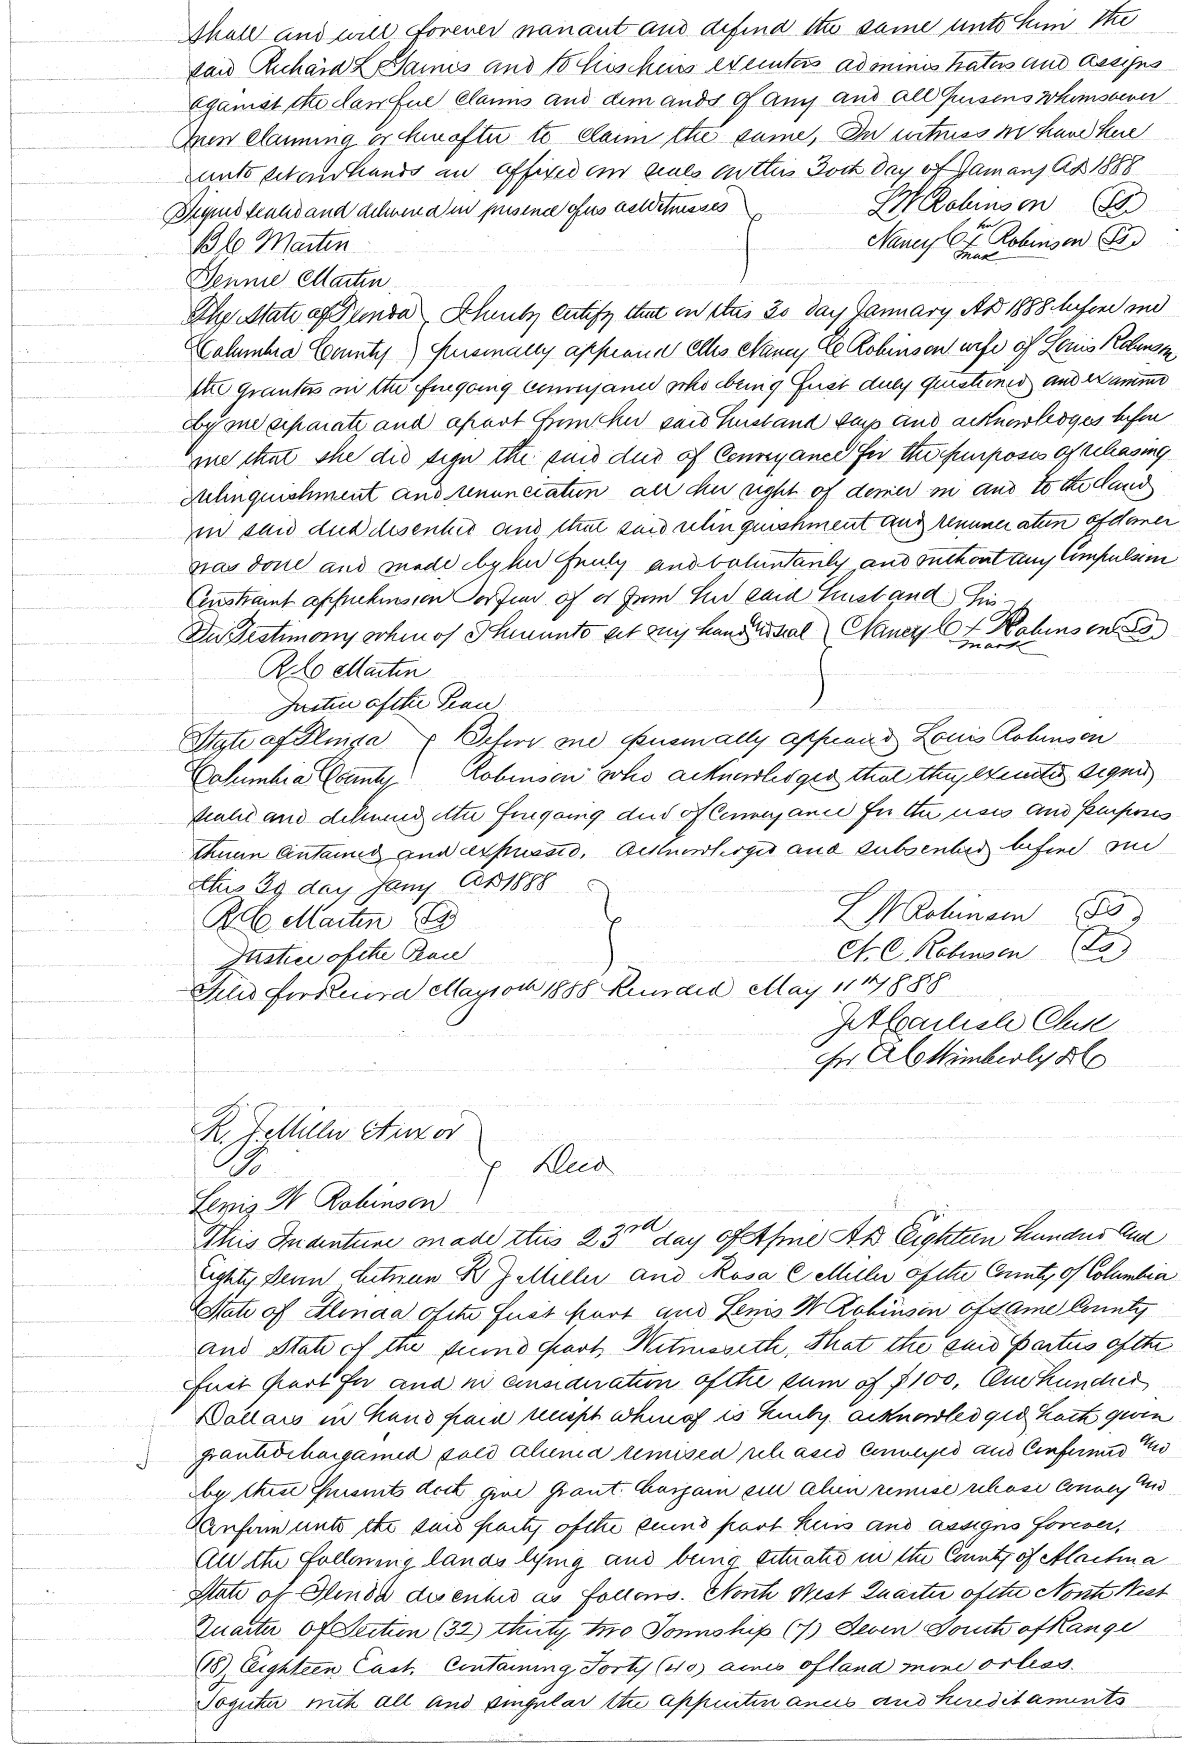 shall and will forever warrant and defend the same unto him the
said Richard L Gaines and to his heirs executors administrators and assigns
against the lawful claims and demands of any and all persons whomsoever
now claiming or hereafter to claim the same, In witness we have here
unto set our hands an affixed our seals on this 30th day of January AD 1888
Signed sealed and delivered in presence of us as witnesses } L W Robinson (LS)
B C Martin Nancy C her X mark Robinson (LS)
Jennie Martin
The State of Florida } I hereby certify that on this 30 day January AD 1888 before me
Columbia County } personally appeared Mrs Nancy C Robinson wife of Louis Robinson
the grantors in the foregoing conveyance who being first duly questioned and examined
by me separate and apart from her said husband says and acknowledges before
me that she did sign the said deed of Conveyance for the purposes of releasing
relinquishment and renunciation all her right of dower in and to the land
in said deed described and that said relinquishment and renunciation of dower
was done and made by her freely and voluntarily and without any Compulsion
Constraint apprehension or fear of or from her said husband his
In Testimony whereof I hereunto set my hand and seal } Nancy C X Robinson (LS)
mark
R C Martin
Justice of the Peace
State of Florida } Before me personally appeared Louis Robinson
Columbia County } Robinson who acknowledged that they executed signed
sealed and delivered the foregoing deed of Conveyance for the uses and purposes
therein contained and expressed. Acknowledged and subscribed before me
this 30 day Jany AD 1888
R C Martin (LS) } L W Robinson (LS)
Justice of the Peace N. C. Robinson (LS)
Filed for Record May 10th 1888 Recorded May 11th 1888
J A Carlisle Clerk
per A C Wimberly DC
R. J. Miller et uxor
To } Deed
Lewis W Robinson
This Indenture made this 23rd day of April AD Eighteen hundred and
Eighty seven between R J Miller and Rosa C Miller of the County of Columbia
State of Florida of the first part and Lewis W Robinson of same County
and State of the second part, Witnesseth, that the said parties of the
first part for and in consideration of the sum of $100, One hundred
Dollars in hand paid receipt whereof is hereby acknowledged hath given
granted bargained sold aliened remised released conveyed and Confirmed and
by these presents doth give grant bargain sell alien remise release convey and
Confirm unto the said party of the second part heirs and assigns forever,
All the following lands lying and being situated in the County of Alachua
State of Florida described as follows. North West Quarter of the North West
Quarter of Section (32) thirty two Township (7) Seven South of Range
(18) Eighteen East. Containing Forty (40) acres of land more or less.
Together with all and singular the appurtenances and hereditaments